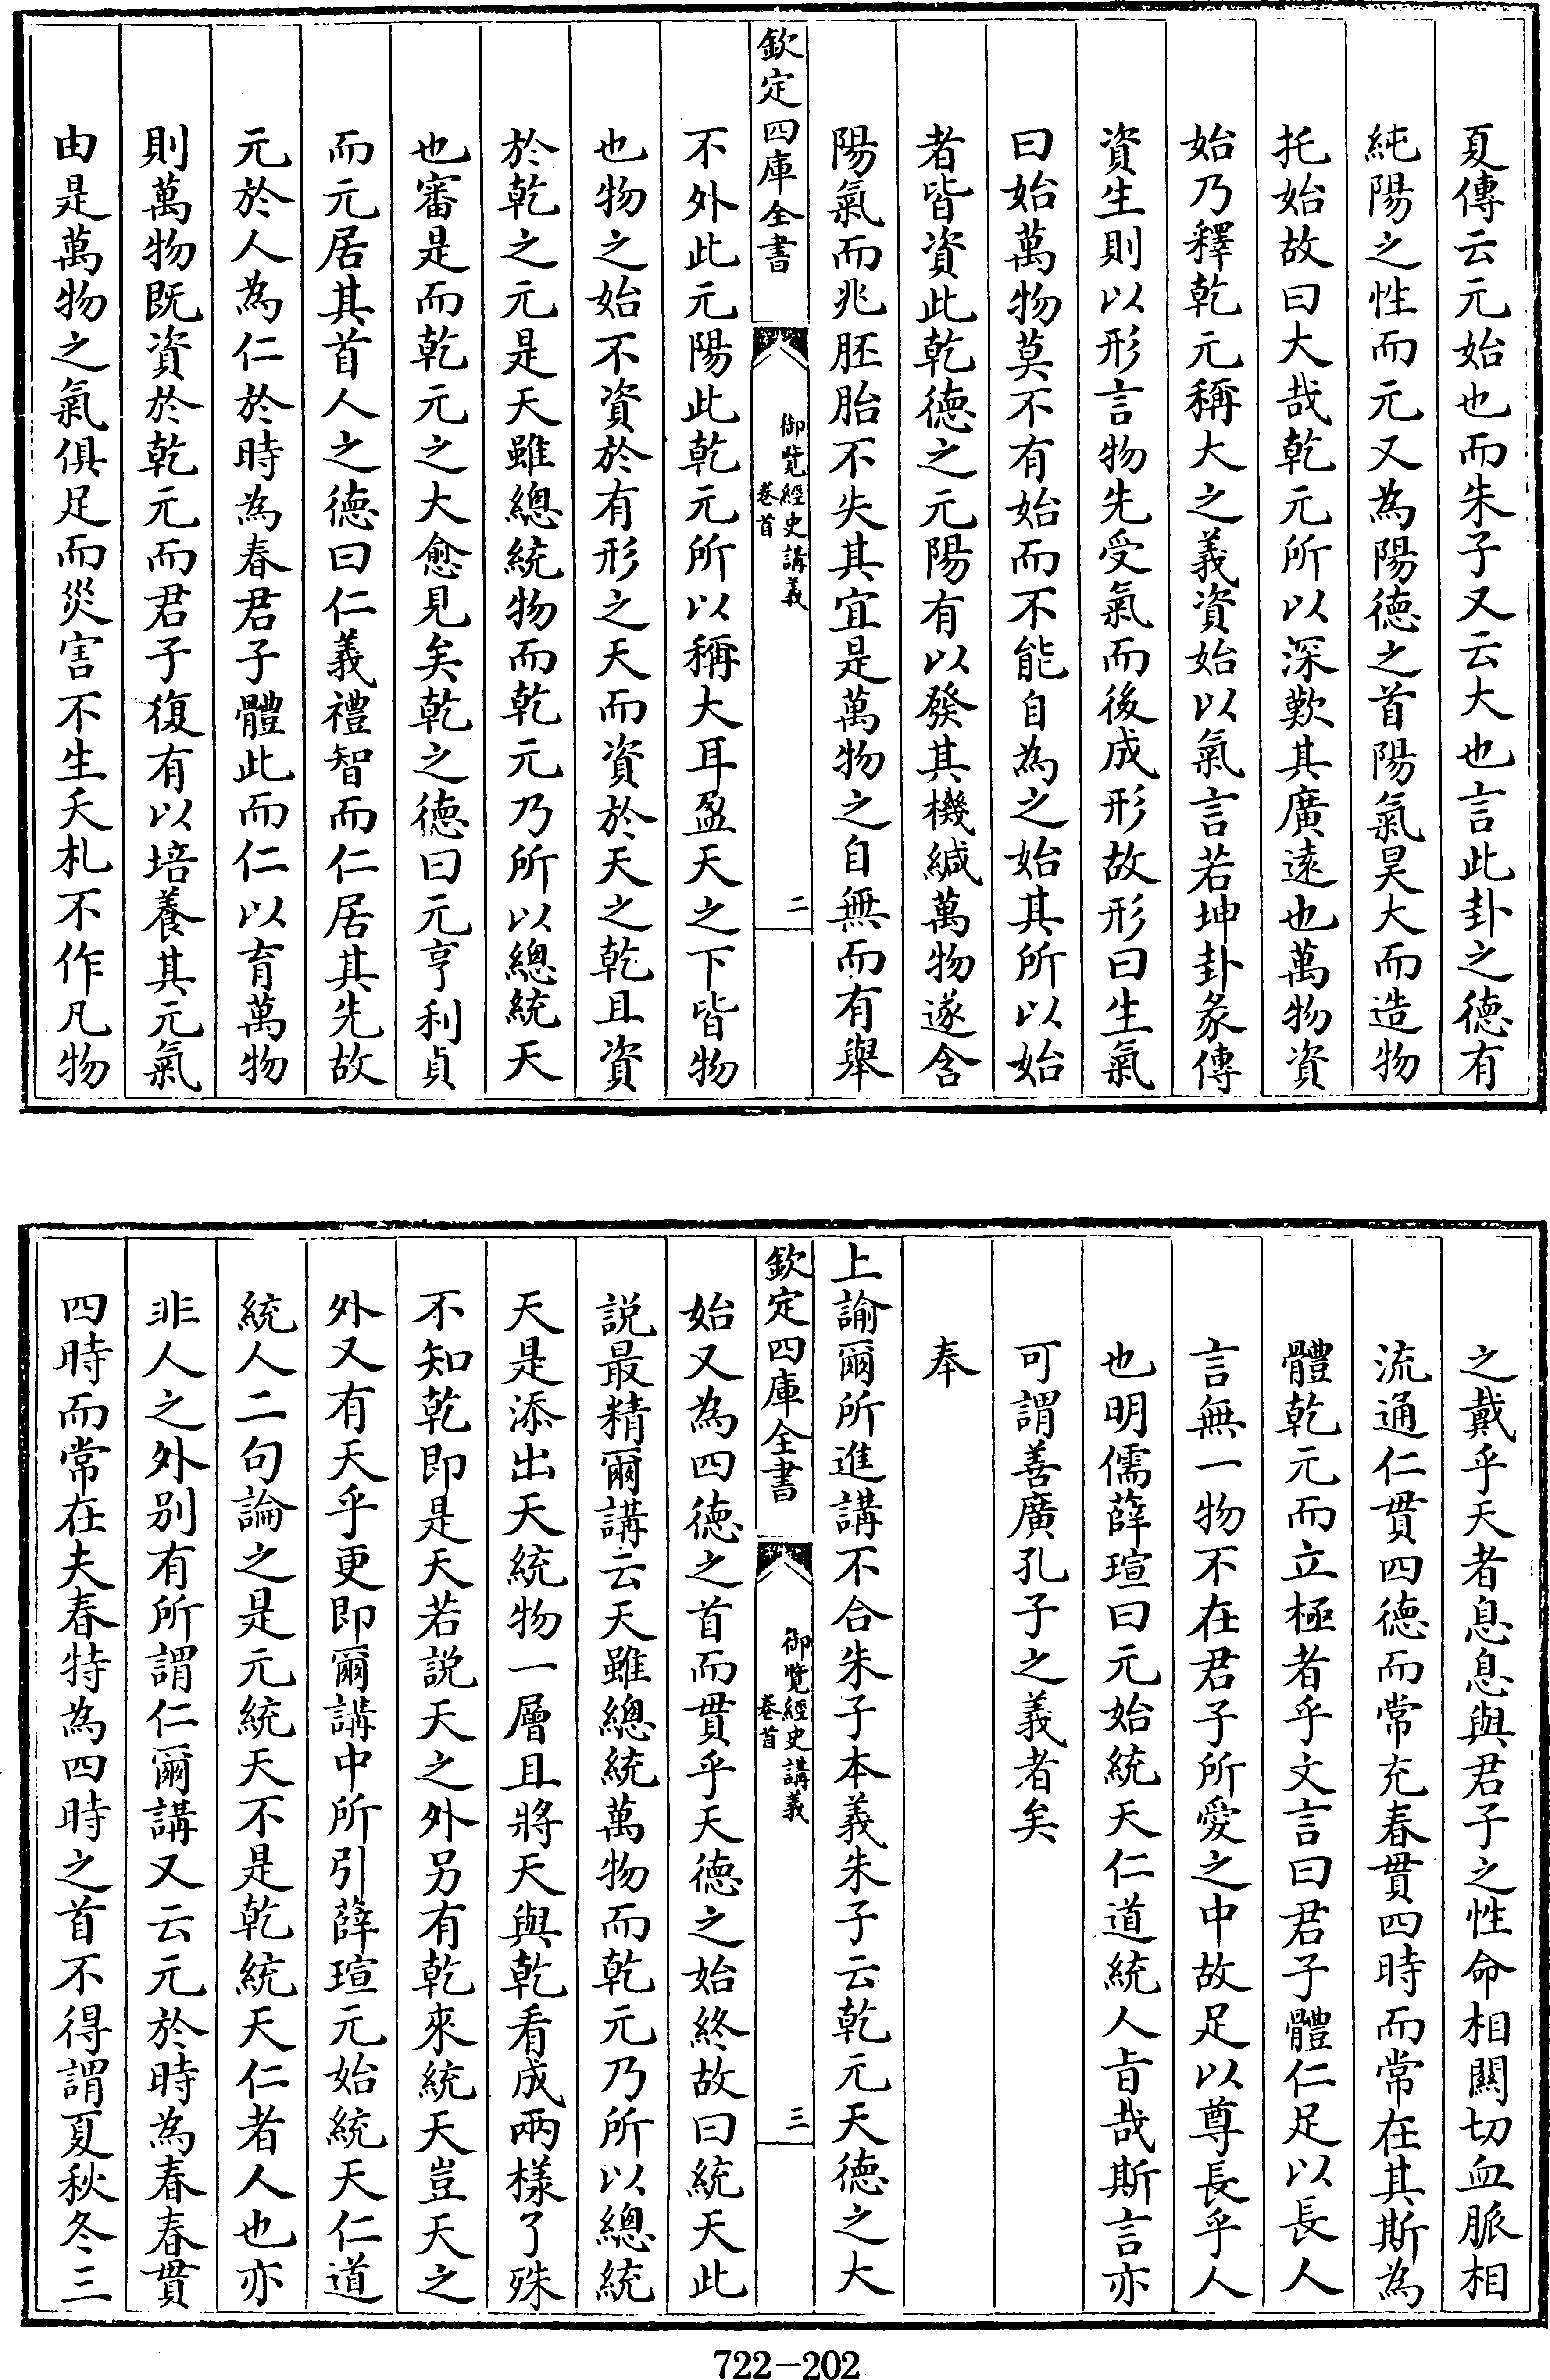 夏傳云元始也而朱子又云大也言此卦之德有
純陽之性而元又為陽德之首陽氣昊大而造物
托始故曰大哉乾元所以深歎其廣遠也萬物資
始乃釋乾元稱大之義資始以氣言若坤卦彖傳
資生則以形言物先受氣而後成形故形曰生氣
曰始萬物莫不有始而不能自為之始其所以始
者皆資此乾德之元陽有以發其機緘萬物遂含
陽氣而兆胚胎不失其宜是萬物之自無而有舉
欽定四庫全書
御覽經史講義
卷首
二
不外此元陽此乾元所以稱大耳盈天之下皆物
也物之始不資於有形之天而資於天之乾且資
於乾之元是天雖總統物而乾元乃所以總統天
也審是而乾元之大愈見矣乾之德曰元亨利貞
而元居其首人之德曰仁義禮智而仁居其先故
元於人為仁於時為春君子體此而仁以育萬物
則萬物既資於乾元而君子復有以培養其元氣
由是萬物之氣俱足而災害不生夭札不作凡物
之戴乎天者息息與君子之性命相關切血脈相
流通仁貫四德而常充春貫四時而常在其斯為
體乾元而立極者乎文言曰君子體仁足以長人
言無一物不在君子所愛之中故足以尊長乎人
也明儒薛瑄曰元始統天仁道統人旨哉斯言亦
可謂善廣孔子之義者矣
奉
上諭爾所進講不合朱子本義朱子云乾元天德之大
欽定四庫全書
御覽經史講義
卷首
三
始又為四德之首而貫乎天德之始終故曰統天此
說最精爾講云天雖總統萬物而乾元乃所以總統
天是添出天統物一層且將天與乾看成兩樣了殊
不知乾即是天若說天之外另有乾來統天豈天之
外又有天乎更即爾講中所引薛瑄元始統天仁道
統人二句論之是元統天不是乾統天仁者人也亦
非人之外別有所謂仁爾講又云元於時為春春貫
四時而常在夫春特為四時之首不得謂夏秋冬三
722-202